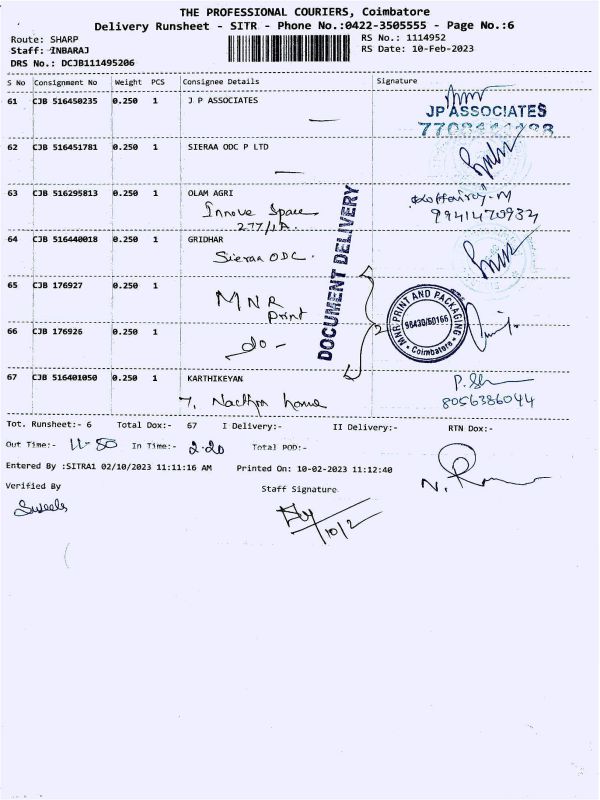 THE PROFESSIONAL COURIERS, Coimbatore
Delivery Runsheet - SITR - Phone No.:0422-3505555 - Page No.:6
Route: SHARP
RS No.: 1114952
Staff: INBARAJ
RS Date: 10-Feb-2023
DRS No.: DCJB111495206
S No Consignment No Weight PCS Consignee Details Signature
61 CJB 516450235 0.250 1 J P ASSOCIATES
JP ASSOCIATES
62 CJB 516451781 0.250 1 SIERAA ODC P LTD
63 CJB 516295813 0.250 1 OLAM AGRI
Innove Space
277/1A.
9941470932
64 CJB 516440018 0.250 1 GRIDHAR
Sieraa ODC.
DOCUMENT DELIVERY
65 CJB 176927 0.250 1
MNR
Print
MNR PRINT AND PACKAGING
98430/60166
* Coimbatore *
66 CJB 176926 0.250 1
do -
67 CJB 516401050 0.250 1 KARTHIKEYAN
7, Nachpa home
8056386044
Tot. Runsheet:- 6 Total Dox:- 67 I Delivery:- II Delivery:- RTN Dox:-
Out Time:- 11-50 In Time:- 2.20 Total POD:-
Entered By :SITRA1 02/10/2023 11:11:16 AM Printed On: 10-02-2023 11:12:40
Verified By
Staff Signature
10/2